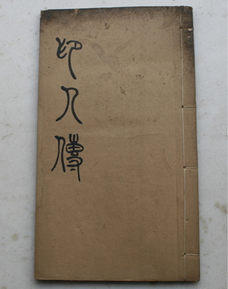 印人傳